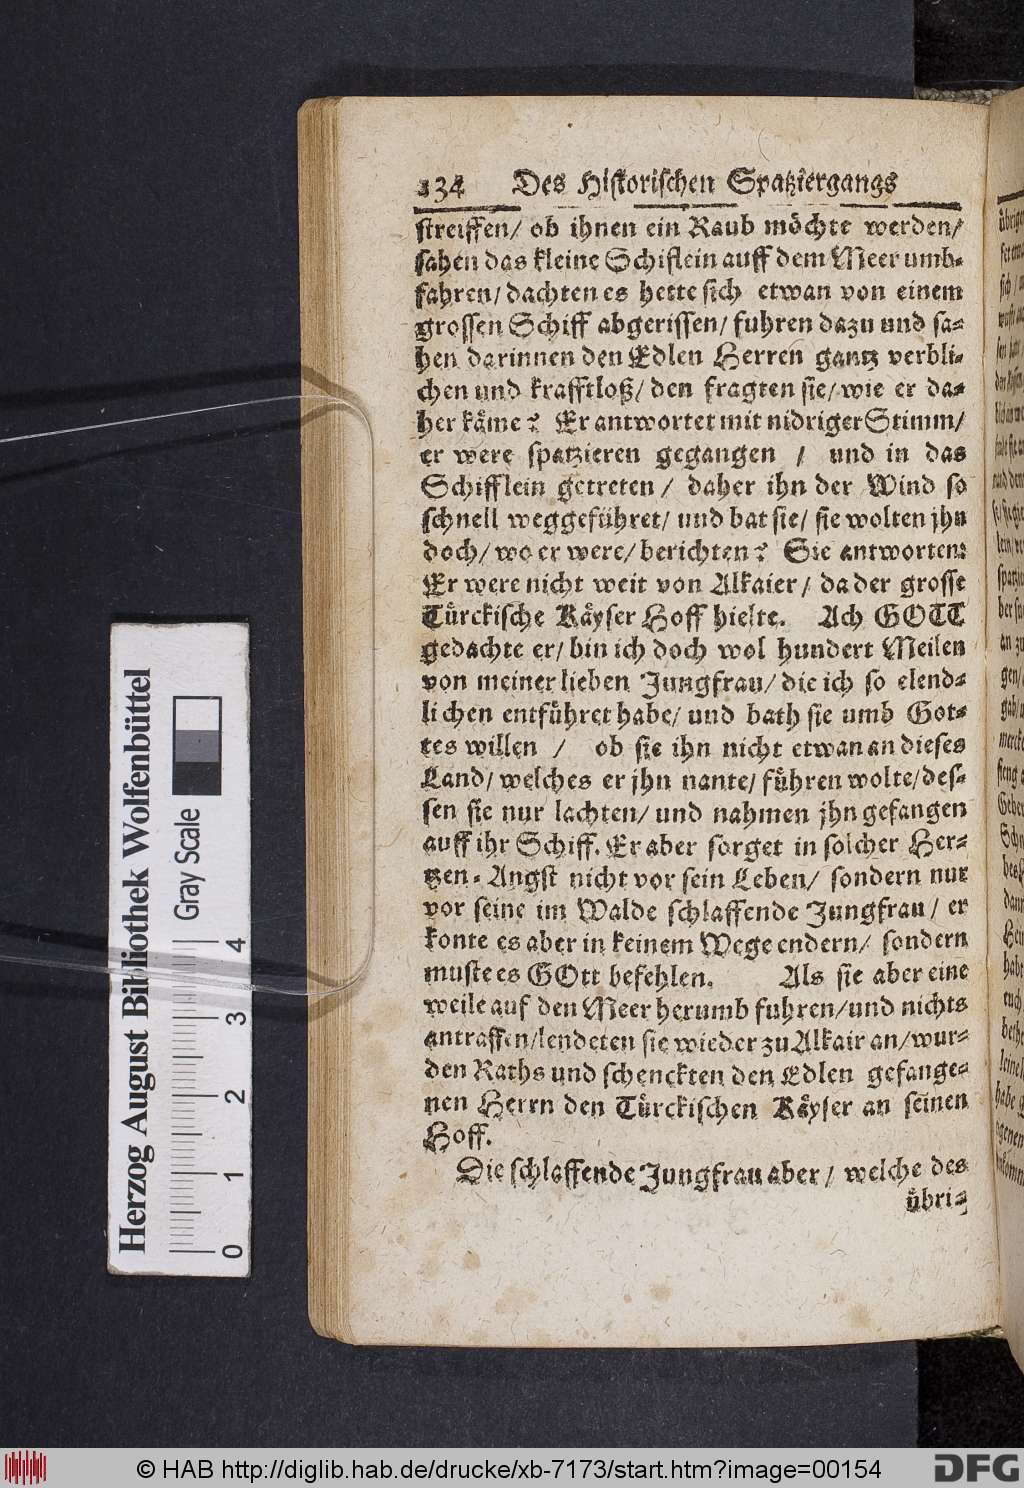 134 Des Historischen Spatziergangs
streiffen/ ob ihnen ein Raub möchte werden/
sahen das kleine Schiflein auff dem Meer umb-
fahren/ dachten es hette sich etwan von einem
grossen Schiff abgerissen/ fuhren dazu und sa-
hen darinnen den Edlen Herren gantz verbli-
chen und krafftloß/ den fragten sie/ wie er da-
her käme? Er antwortet mit nidriger Stimm/
er were spatzieren gegangen / und in das
Schifflein getreten / daher ihn der Wind so
schnell weggeführet/ und bat sie/ sie wolten jhn
doch/ wo er were/ berichten? Sie antworten:
Er were nicht weit von Alkaier/ da der grosse
Türckische Käyser Hoff hielte. Ach GOTT
gedachte er/ bin ich doch wol hundert Meilen
von meiner lieben Jungfrau/ die ich so elend-
lichen entführet habe/ und bath sie umb Got-
tes willen / ob sie ihn nicht etwan an dieses
Land/ welches er jhn nante/ führen wolte/ des-
sen sie nur lachten/ und nahmen jhn gefangen
auff ihr Schiff. Er aber sorget in solcher Her-
tzen-Angst nicht vor sein Leben/ sondern nur
vor seine im Walde schlaffende Jungfrau/ er
konte es aber in keinem Wege endern/ sondern
muste es GOtt befehlen. Als sie aber eine
weile auf den Meer herumb fuhren/ und nichts
antraffen/ lendeten sie wieder zu Alkair an/ wur-
den Raths und schenckten den Edlen gefange-
nen Herrn den Türckischen Käyser an seinen
Hoff.
Die schlaffende Jungfrau aber/ welche des
übri-
Herzog August Bibliothek Wolfenbüttel
Gray Scale
0 1 2 3 4
© HAB http://diglib.hab.de/drucke/xb-7173/start.htm?image=00154
DFG